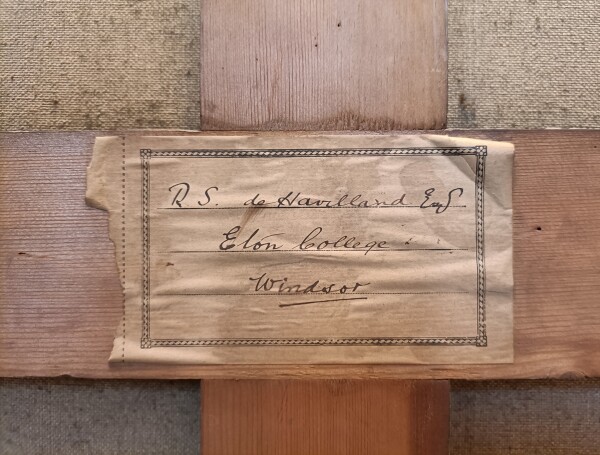 R. S. de Havilland Esq
Eton College
Windsor